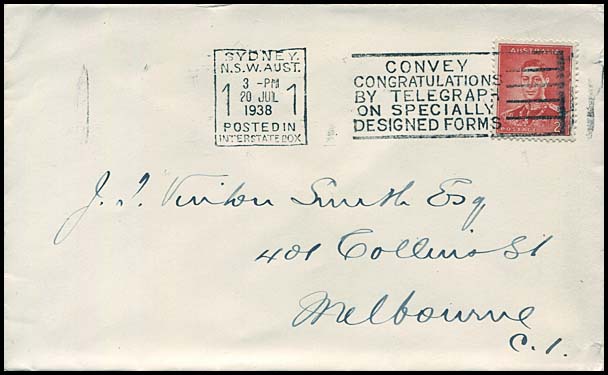 SYDNEY.
N.S.W. AUST.
3-PM
1 20 JUL 1
1938
POSTED IN
INTERSTATE BOX
CONVEY
CONGRATULATIONS
BY TELEGRAPH
ON SPECIALLY
DESIGNED FORMS
AUSTRALIA
POSTAGE 2
J. V. Vinton Smith Esq
401 Collins St
Melbourne
C. 1.